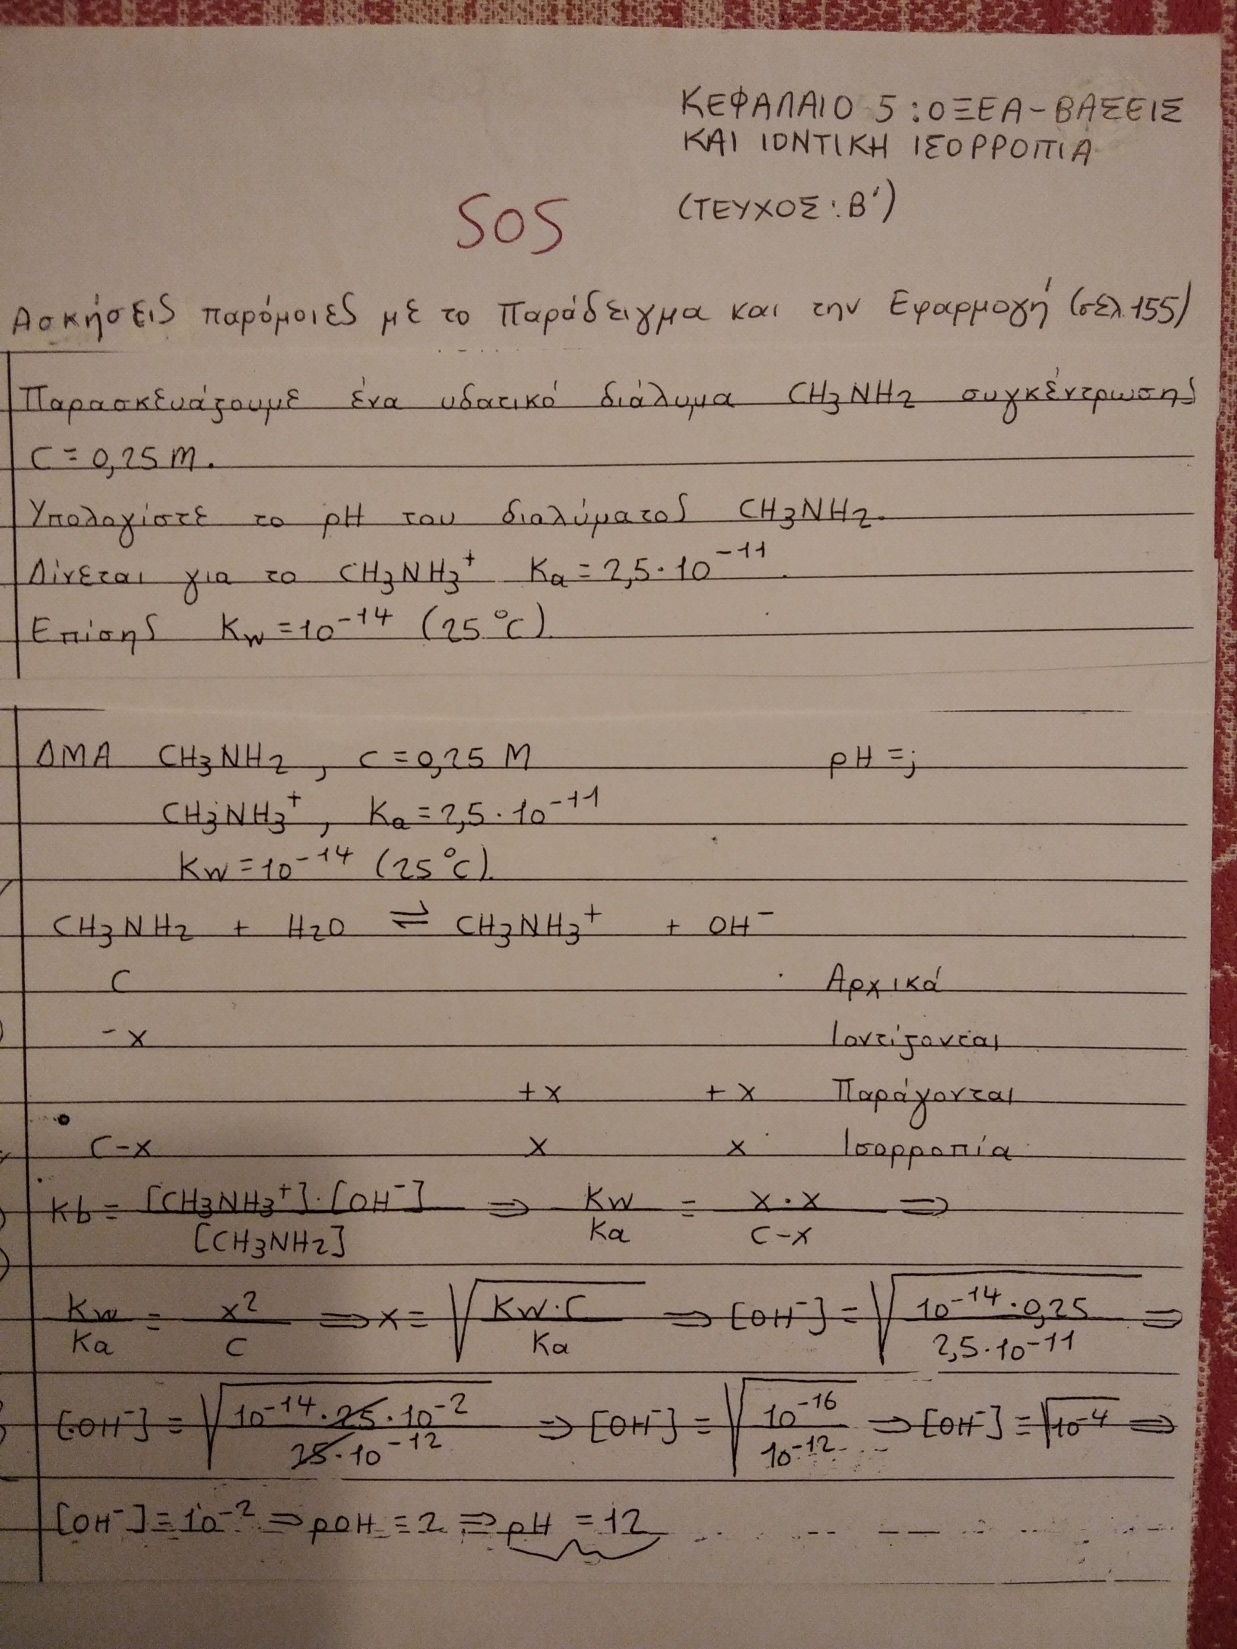 ΚΕΦΑΛΑΙΟ 5 : ΟΞΕΑ-ΒΑΣΕΙΣ
ΚΑΙ ΙΟΝΤΙΚΗ ΙΣΟΡΡΟΠΙΑ
(ΤΕΥΧΟΣ : Β')
SOS
Ασκήσεις παρόμοιες με το Παράδειγμα και την Εφαρμογή (σελ. 155)
Παρασκευάζουμε ένα υδατικό διάλυμα CH3NH2 συγκέντρωσης
C = 0,25 M.
Υπολογίστε το pH του διαλύματος CH3NH2.
Δίνεται για το CH3NH3⁺ Ka = 2,5·10⁻¹¹.
Επίσης Kw = 10⁻¹⁴ (25°C).
ΔΜΑ CH3NH2, C = 0,25 M pH = ;
CH3NH3⁺, Ka = 2,5·10⁻¹¹
Kw = 10⁻¹⁴ (25°C).
CH3NH2 + H2O ⇌ CH3NH3⁺ + OH⁻
C Αρχικά
-x Ιοντίζονται
+x +x Παράγονται
C-x x x Ισορροπία
Kb = [CH3NH3⁺]·[OH⁻] / [CH3NH2] ⇒ Kw / Ka = x·x / C-x ⇒
Kw / Ka = x² / C ⇒ x = √(Kw·C / Ka) ⇒ [OH⁻] = √(10⁻¹⁴·0,25 / 2,5·10⁻¹¹) ⇒
[OH⁻] = √(10⁻¹⁴·25·10⁻² / 25·10⁻¹²) ⇒ [OH⁻] = √(10⁻¹⁶ / 10⁻¹²) ⇒ [OH⁻] = √10⁻⁴ ⇒
[OH⁻] = 10⁻² ⇒ pOH = 2 ⇒ pH = 12